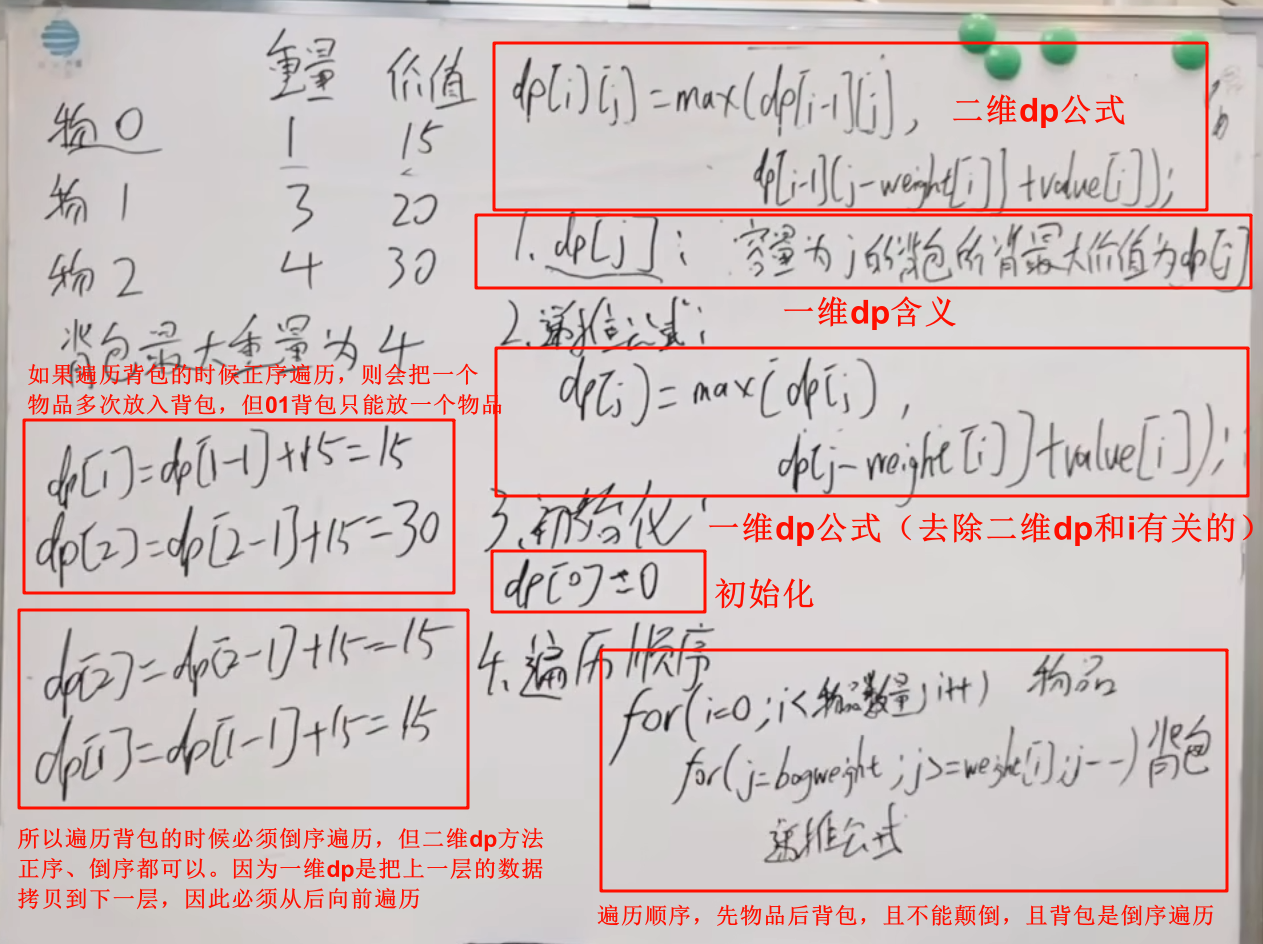 重量 价值
物0 1 15
物1 3 20
物2 4 30
背包最大重量为4
如果遍历背包的时候正序遍历，则会把一个
物品多次放入背包，但01背包只能放一个物品
dp[1]=dp[1-1]+15=15
dp[2]=dp[2-1]+15=30
dp[2]=dp[2-1]+15=15
dp[1]=dp[1-1]+15=15
所以遍历背包的时候必须倒序遍历，但二维dp方法
正序、倒序都可以。因为一维dp是把上一层的数据
拷贝到下一层，因此必须从后向前遍历
dp[i][j]=max(dp[i-1][j],
二维dp公式
dp[i-1][j-weight[i]]+value[i]);
1. dp[j]: 容量为j的背包所背最大价值为dp[j]
一维dp含义
2.递推公式:
dp[j]=max(dp[j],
dp[j-weight[i]]+value[i]);
3.初始化:
一维dp公式（去除二维dp和i有关的）
dp[0]=0
初始化
4.遍历顺序
for(i=0;i<物品数量;i++) 物品
for(j=bagweight;j>=weight[i];j--)背包
递推公式
遍历顺序，先物品后背包，且不能颠倒，且背包是倒序遍历